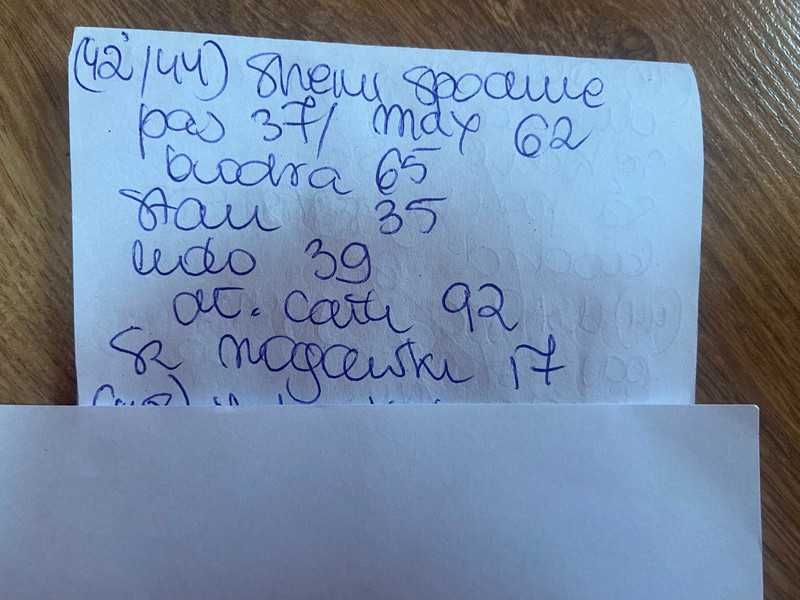 (42/44) spodnie
pas 37/ max 62
biodra 65
stan 35
udo 39
dł. całk 92
sz nogawki 17